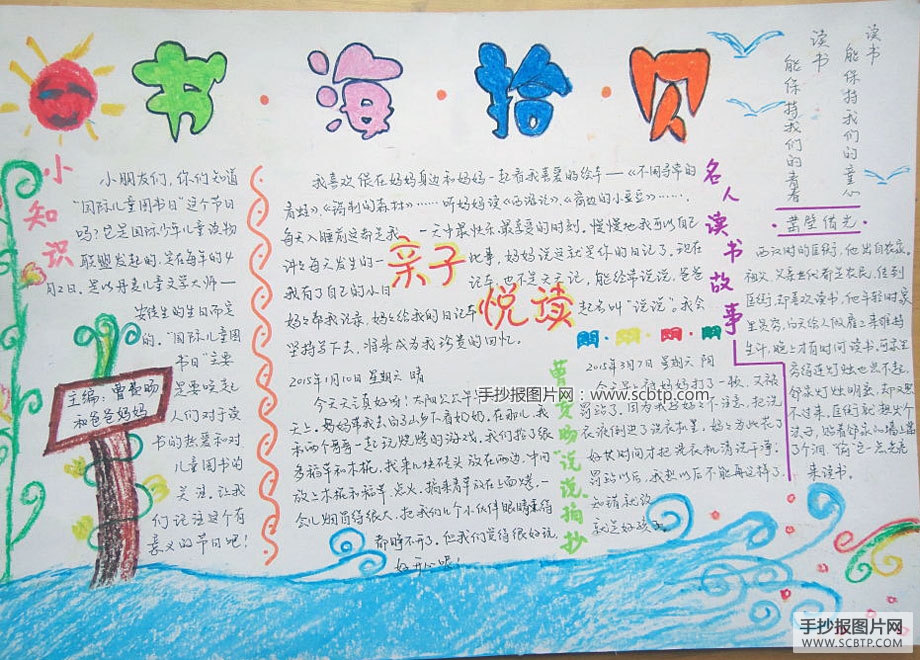 书·海·拾·贝
小知识
小朋友们，你们知道
"国际儿童图书日"这个节日
吗？它是国际少年儿童读物
联盟发起的，是在每年的4
月2日，是以丹麦儿童文学大师—
安徒生的生日而定
的。"国际儿童图
书日"主要
是要唤起
人们对于读
书的热爱和对
儿童图书的
关注，让我
们记注这个有
意义的节日吧！
主编：曹
和爸爸妈妈
我喜欢偎在妈妈身边和妈妈一起看我喜爱的绘本—《不同寻常的
青蛙》、《调制的森林》……听妈妈读《西游记》、《窗边的小豆豆》……
每天入睡前这都是我一天中最快乐最享受的时刻。慢慢地我可以自己
讲讲每天发生的一
些事，妈妈说这就是你的日记了。现在
我有了自己的小日
记本，也不是天天记，能经常说说，爸爸
妈妈帮我记录，妈妈给我的日记本
起名叫"说说"，我会
坚持写下去，将来成为我珍贵的回忆。
亲子
悦读
2015年1月10日 星期六 晴
今天天气真好啊！太阳公公早早
天上。妈妈带我去回了山乡下看奶奶。在那儿，我
和两个哥哥一起玩烧烤的游戏，我们捡了很
多稻草和木棍，找来几块砖头放在两边，中间
放上木棍和稻草，点火，摘来青草放在上面烤，一
会儿烟冒得很大，把我们几个小伙伴眼睛熏得
都睁不开了，但我们觉得很好玩，
好开心呢！
说说摘抄
2015年3月7日 星期六 阴
今天早上被妈妈打了一顿，又被
罚站了，因为我写好2个注意，把洗
衣液倒进了洗衣机里，妈妈为此花了
好长时间才把洗衣机清洗干净。
罚站以后，我想以后不能再这样了，
知错就改
就是好孩子。
名人读书故事
凿壁借光
西汉时的匡衡，他出自农家，
祖父、父亲世代都是农民，传到
匡衡，却喜欢读书。他年轻时家
里贫穷，白天给人做雇工来维持
生计，晚上才有时间读书。可家里
穷得连灯烛也点不起，
邻家灯烛明亮，却又照
不过来，匡衡就想出个
法子，贴着邻家的墙上凿
了个洞，"偷"它一点光亮
来读书。
读书
能保持我们的青春
读书
能保持我们的童心
手抄报图片网
www.scbtp.com
手抄报图片网
WWW.SCBTP.COM